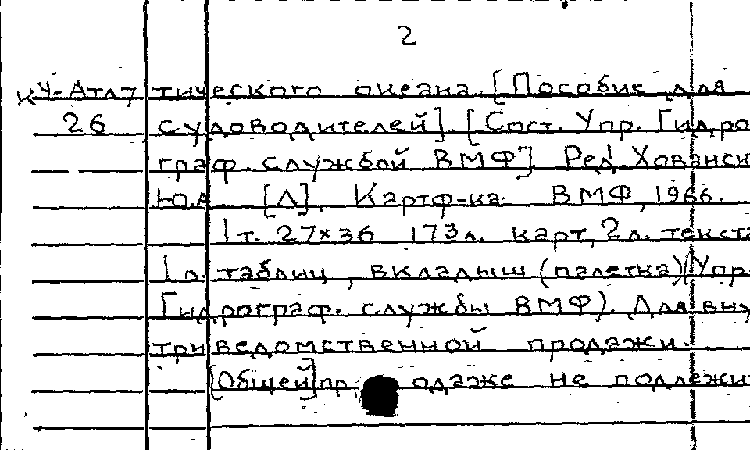 2
КУ-Атл7 тического океана. [Пособие для
26 судоводителей] [Сост. Упр. Гидро
граф. службой ВМФ"] Ред. Хованск
Ю.А [Л]. Картф-ка ВМФ, 1966.
1т. 27×36 173л. карт, 2л. текста
1л. таблиц, вкладыш (палетка) (Упр.
Гидрограф. службы ВМФ). Для вну
триведомственной продажи.
[Общей] пр одаже не подлежи